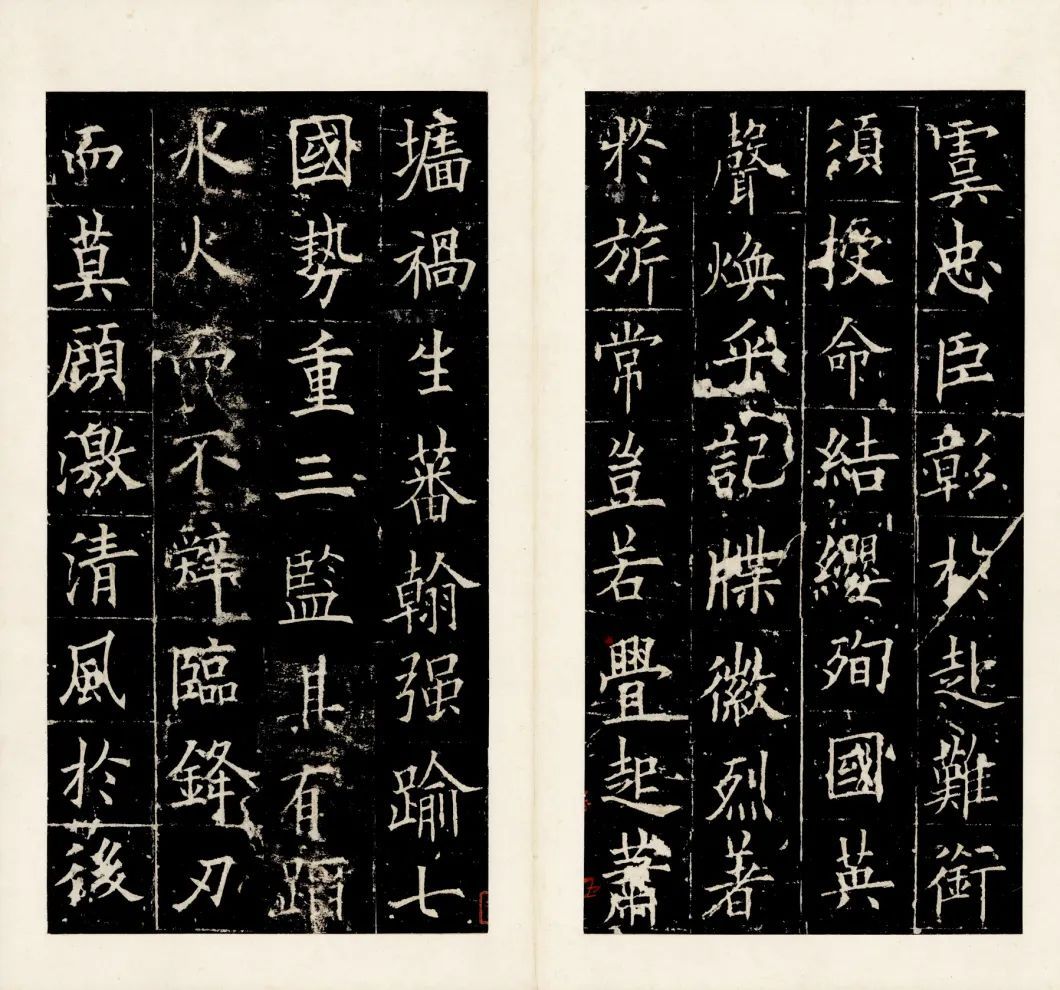 虞忠臣彰於赴難銜
須授命結纓殉國英
聲煥乎記牒徽烈著
於旂常豈若舋起蕭
墻禍生蕃翰强踰七
國勢重三監其有蹈
水火而不辭臨鋒刃
而莫顧激清風於後